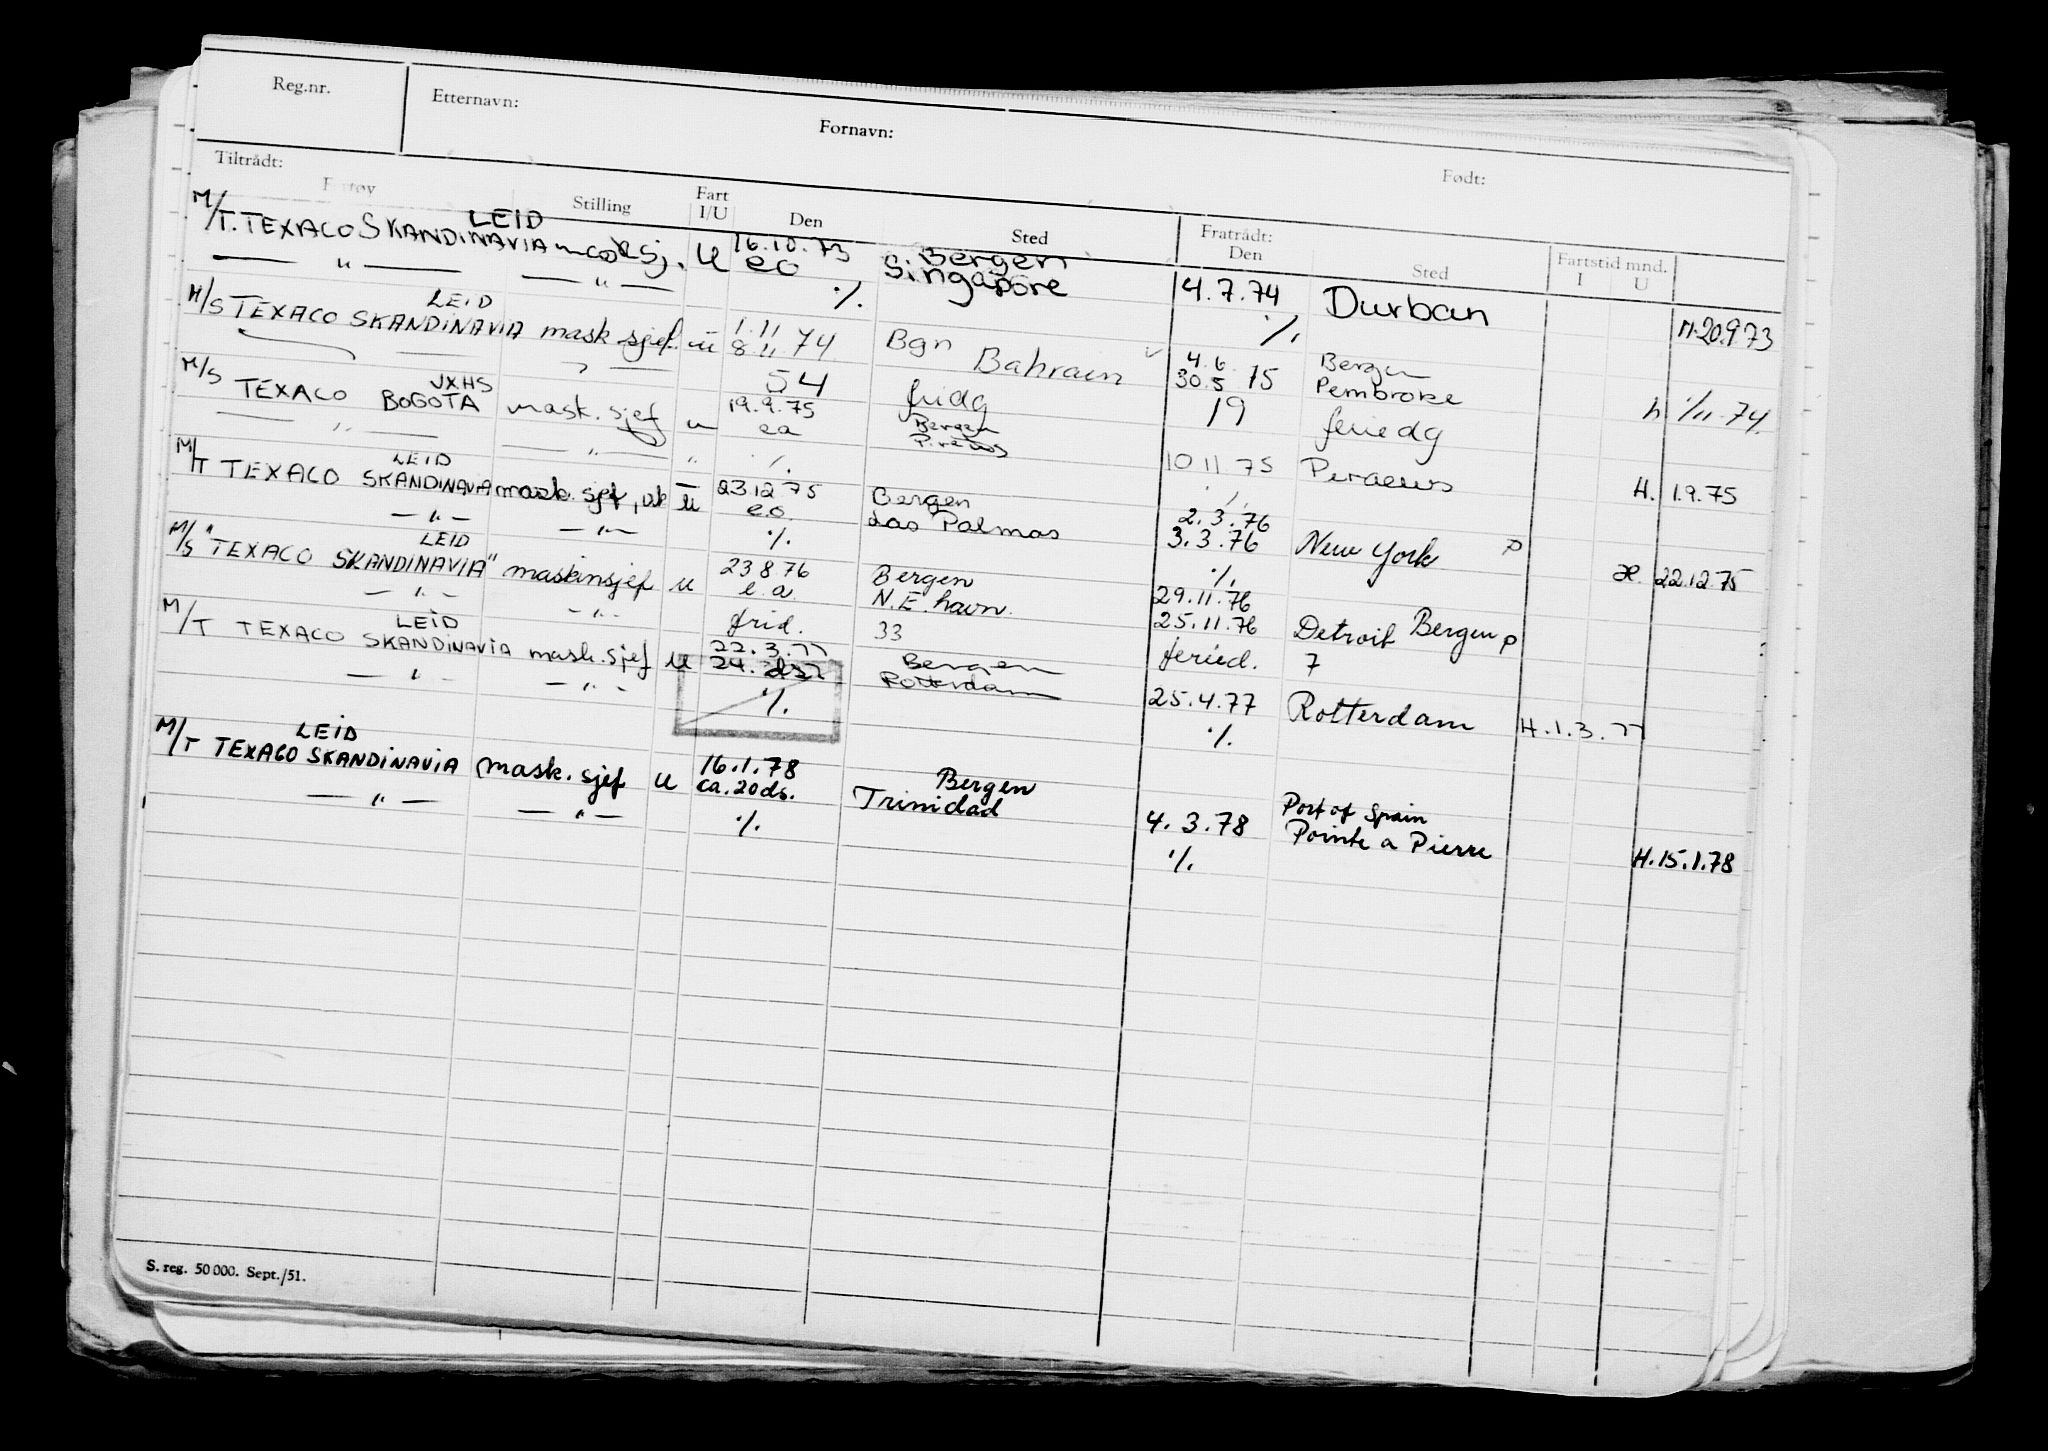 Reg.nr. Etternavn: Fornavn: Født:
Tiltrådt: Stilling Fart I/U Den Sted Fratrådt: Den Sted Fartstid mnd. I U
LEID
M/T. TEXACO SKANDINAVIA U 16.10.73 Bergen
— " — — " — eo Singapore 4.7.74 Durban
./. ./. M.20.9.73
LEID
M/S TEXACO SKANDINAVIA mask sjef. u 1.11 Bgn 4.6. Bergen
8.11 74 Bahrain 30.5 75 Pembroke
54 fridg 19 feriedg h 1/11.74.
JXHS
M/S TEXACO BOGOTA mask. sjef u 19.9.75 Bergen
— " — — " — " ea Pireus 10 11 75 Peraeus
./. ./. H. 1.9.75
LEID
M/T TEXACO SKANDINAVIA mask. sjef, u 23.12.75 Bergen 2.3.76
— " — — " — e.o. Las Palmas 3.3.76 New York p
./. ./. H. 22.12.75
LEID
M/S "TEXACO SKANDINAVIA" maskinsjef u 23 8 76 Bergen 29.11.76 Bergen p
— " — — " — e.a. N.E. havn. 25.11.76 Detroit
frid. 33 feried. 7
LEID
M/T TEXACO SKANDINAVIA mask. sjef u 22.3.77 Bergen
— " — — " — 24. Rotterdam 25.4.77 Rotterdam H.1.3.77
./. ./.
LEID
M/T TEXACO SKANDINAVIA mask. sjef u 16.1.78 Bergen Port of Spain
— " — — " — ca. 20 ds. Trinidad 4.3.78 Pointe a Pierre
./. ./. H.15.1.78
S. reg. 50 000. Sept./51.